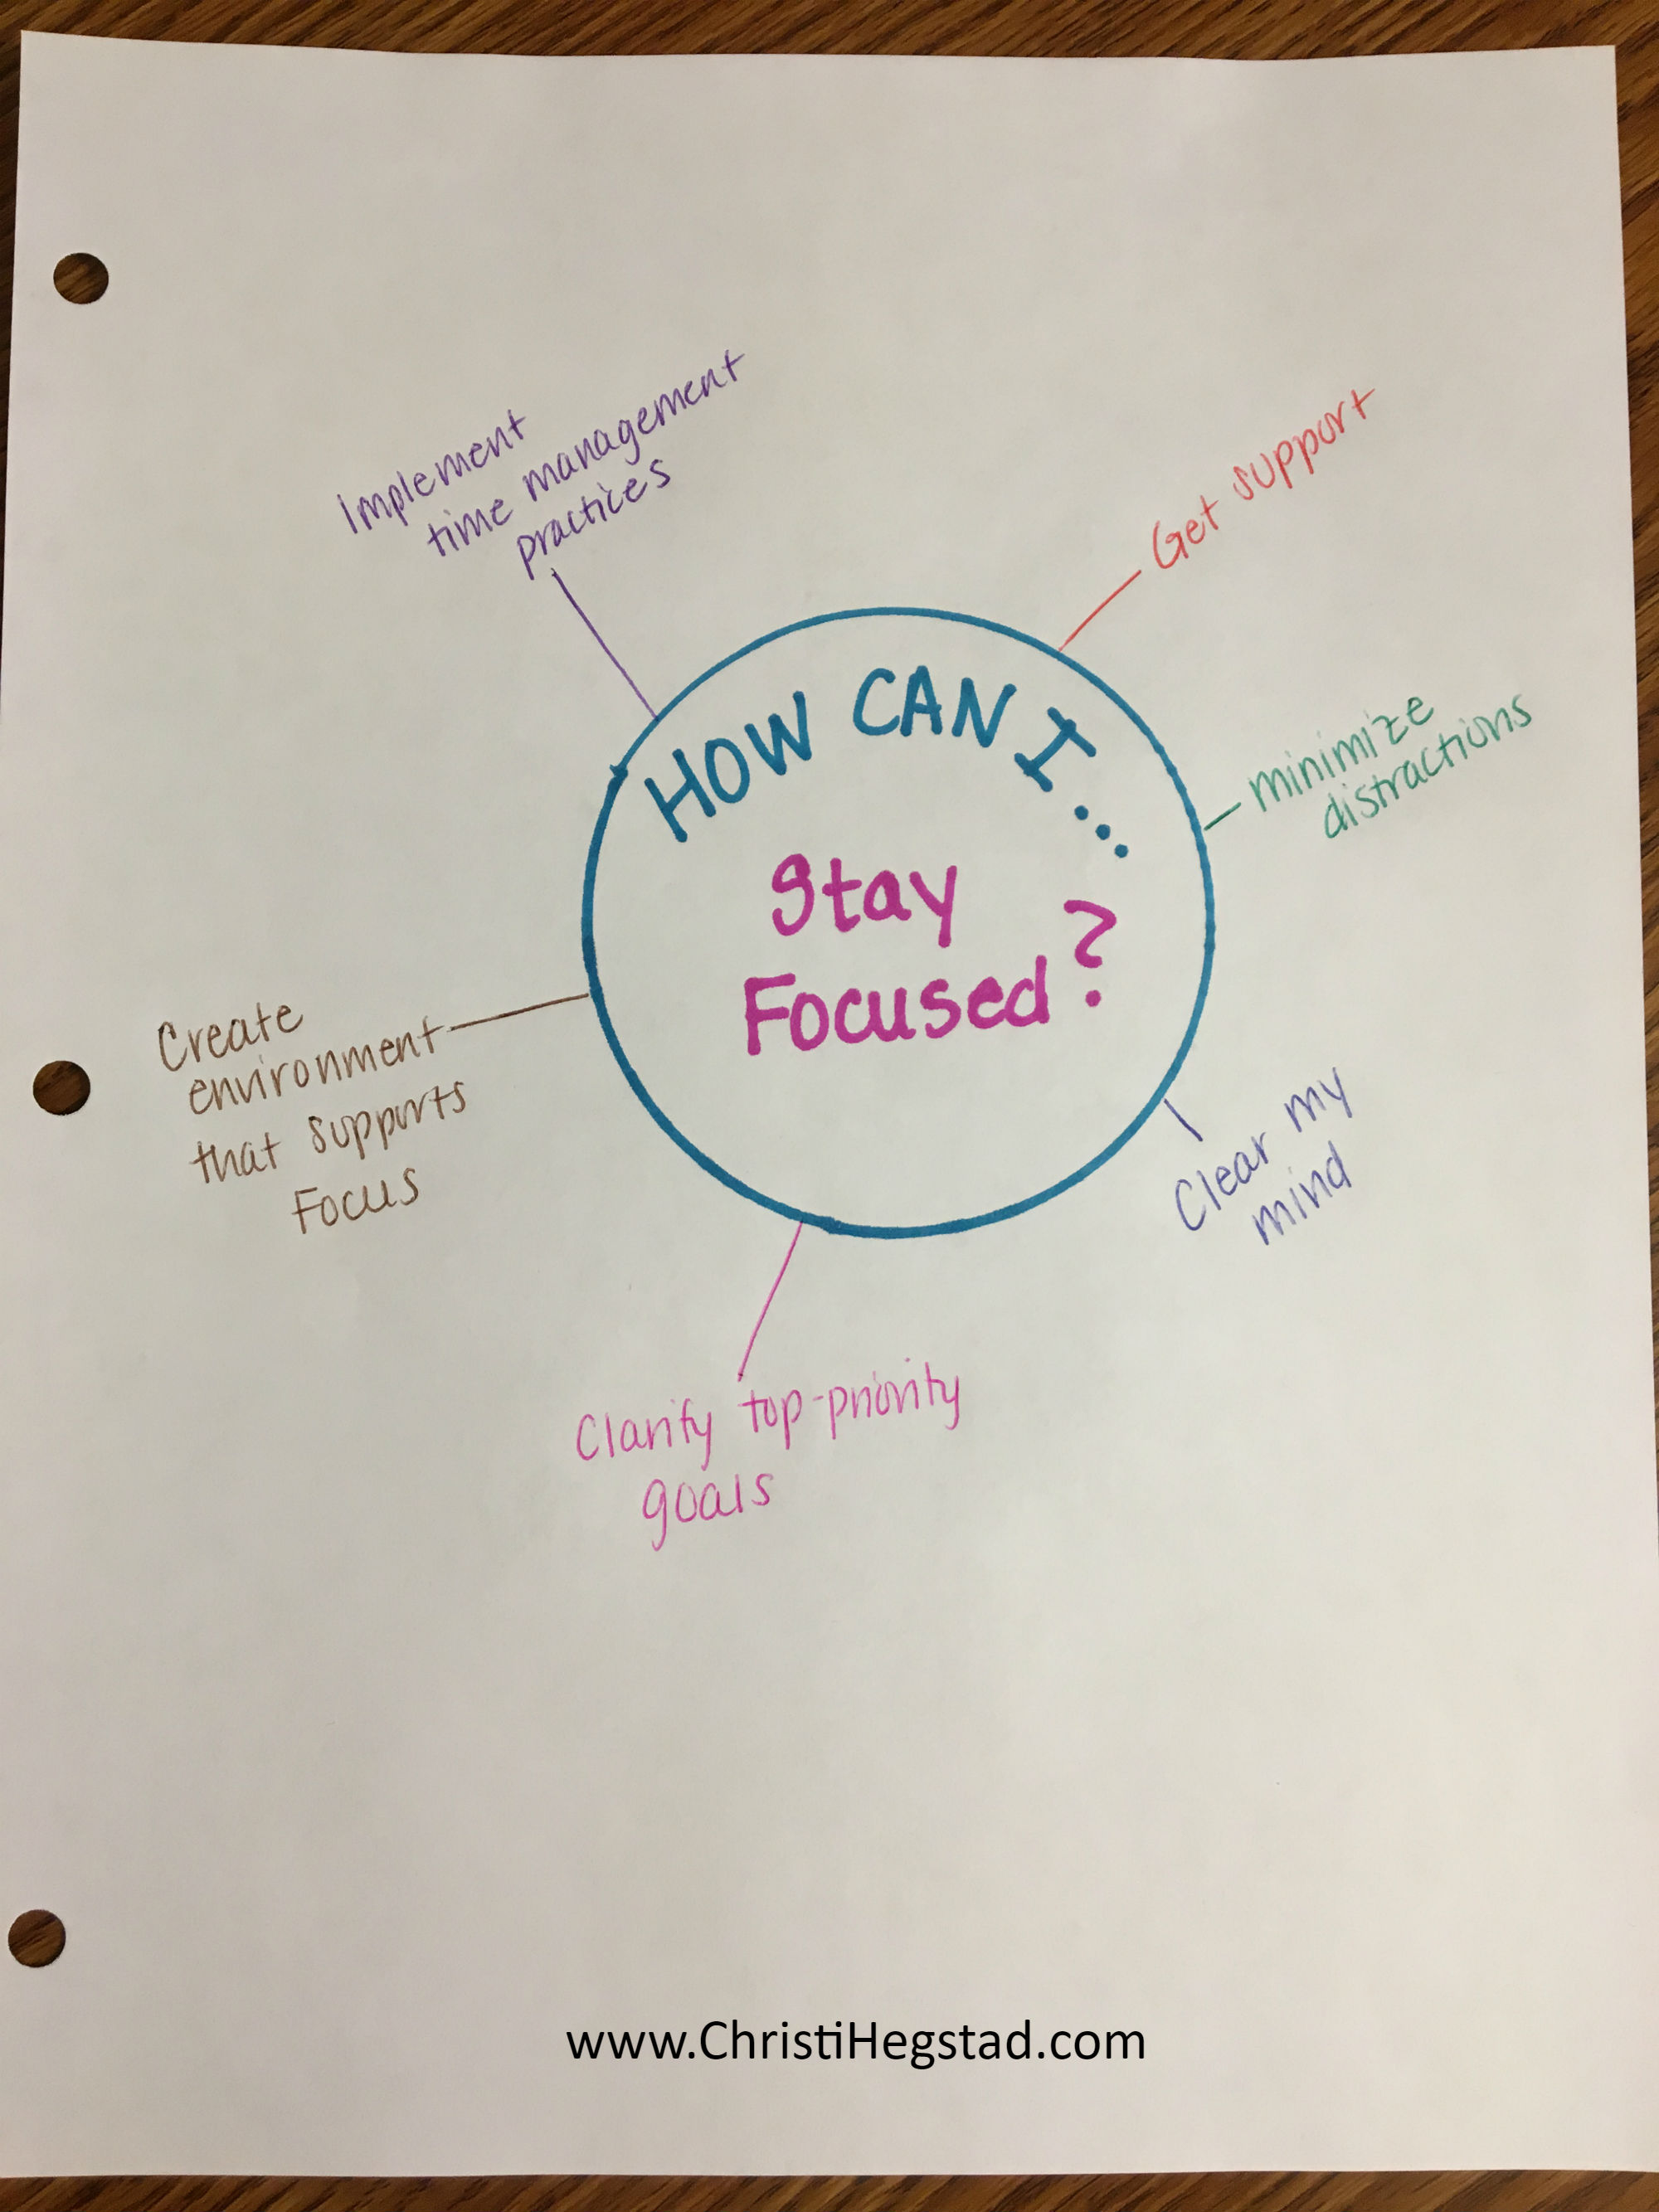 Implement
time management
practices
Get support
minimize
distractions
HOW CAN I...
Stay
Focused?
Create
environment
that supports
Focus
Clear my
mind
Clarify top-priority
goals
www.ChristiHegstad.com